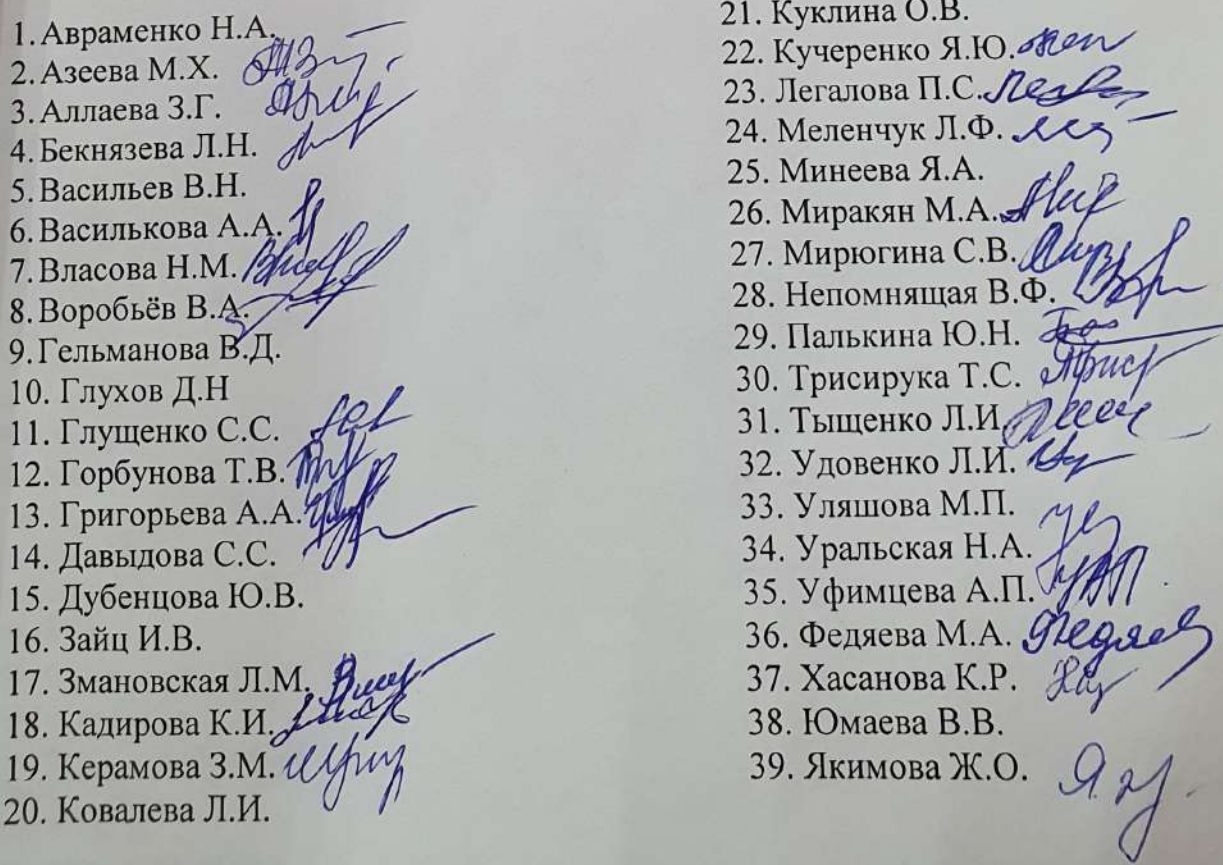 1. Авраменко Н.А.
2. Азеева М.Х.
3. Аллаева З.Г.
4. Бекнязева Л.Н.
5. Васильев В.Н.
6. Василькова А.А.
7. Власова Н.М.
8. Воробьёв В.А.
9. Гельманова В.Д.
10. Глухов Д.Н
11. Глущенко С.С.
12. Горбунова Т.В.
13. Григорьева А.А.
14. Давыдова С.С.
15. Дубенцова Ю.В.
16. Зайц И.В.
17. Змановская Л.М.
18. Кадирова К.И.
19. Керамова З.М.
20. Ковалева Л.И.
21. Куклина О.В.
22. Кучеренко Я.Ю.
23. Легалова П.С.
24. Меленчук Л.Ф.
25. Минеева Я.А.
26. Миракян М.А.
27. Мирюгина С.В.
28. Непомнящая В.Ф.
29. Палькина Ю.Н.
30. Трисирука Т.С.
31. Тыщенко Л.И.
32. Удовенко Л.И.
33. Уляшова М.П.
34. Уральская Н.А.
35. Уфимцева А.П. УАП
36. Федяева М.А.
37. Хасанова К.Р.
38. Юмаева В.В.
39. Якимова Ж.О.